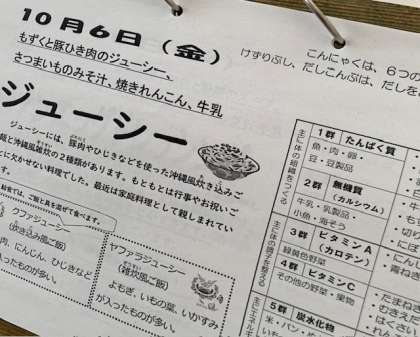 10月6日（金）
もずくと豚ひき肉のジューシー、
さつまいものみそ汁、焼きれんこん、牛乳
ジューシー
ジューシーには、豚肉やひじきなどを使った沖縄風炊き込みご
飯と沖縄風雑炊の２種類があります。もともとは行事やお祝いご
とに欠かせない料理でした。最近は家庭料理として親しまれてい
給食では、ご飯と具を混ぜて食べます。
クファジューシー
（炊き込み風ご飯）
肉、にんじん、ひじきなど
が入ったものが多い。
ヤファラジューシー
（雑炊風ご飯）
よもぎ、いもの葉、いかすみ
が入ったものが多い。
こんにゃくは、６つの
けずりぶし、だしこんぶは、だしを
主に体の組織をつくる
1群 たんぱく質
魚・肉・卵・
豆・豆製品
2群 無機質
（カルシウム）
牛乳・乳製品・
小魚・海そう
主に体の調子を整える
3群 ビタミンA
（カロテン）
緑黄色野菜
4群 ビタミンC
その他の野菜・果物
5群 炭水化物
米・パン・め
にんじ
たまね
むきえだ
はくさい